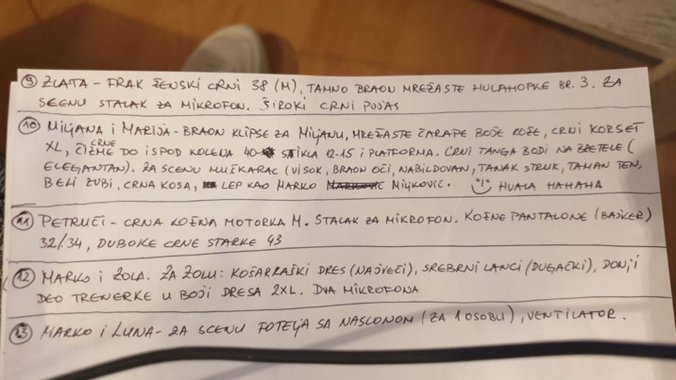 9 ZLATA - FRAK ŽENSKI CRNI 38 (M), TAMNO BRAON MREŽASTE HULAHOPKE BR. 3. ZA
SCENU STALAK ZA MIKROFON. ŠIROKI CRNI POJAS
10 MILJANA I MARIJA - BRAON KLIPSE ZA MILJANU, MREŽASTE ČARAPE BOJE KOŽE, CRNI KORSET
XL, CRNE ČIZME DO ISPOD KOLENA 40 ŠTIKLA 12-15 I PLATFORMA. CRNI TANGA BODI NA BRETELE (
ELEGANTAN). ZA SCENU MUŠKARAC (VISOK, BRAON OČI, NABILDOVAN, TANAK STRUK, TAMAN TEN,
BELI ZUBI, CRNA KOSA, LEP KAO MARKO MARKOVIC MILJKOVIC. HVALA HAHAHA
11 PETRUČI - CRNA KOŽNA MOTORKA M. STALAK ZA MIKROFON. KOŽNE PANTALONE (BAJKER)
32/34, DUBOKE CRNE STARKE 43
12 MARKO I ZOLA. ZA ZOLU: KOŠARKAŠKI DRES (NAJVEĆI), SREBRNI LANCI (DUGAČKI), DONJI
DEO TRENERKE U BOJI DRESA 2XL. DVA MIKROFONA
13 MARKO I LUNA - ZA SCENU FOTELJA SA NASLONOM (ZA 1 OSOBU), VENTILATOR.